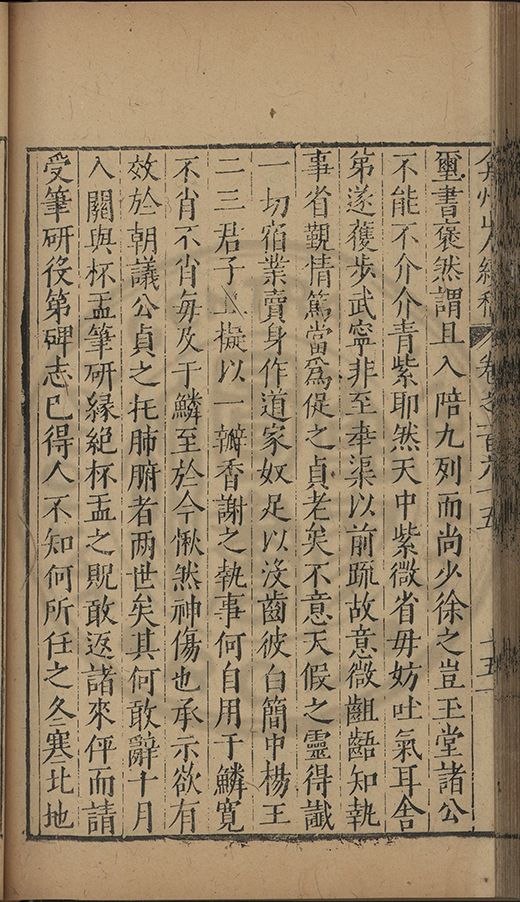 弇州山人續稿 卷之一百九十五 十五
璽書褒然謂且入陪九列而尚少徐之豈玉堂諸公
不能不介介青紫耶然天中紫微省毋妨吐氣耳舍
弟遂獲步武寧非至幸渠以前疏故意微齟齬知執
事省覲情篤當爲促之貞老矣不意天假之靈得讖
一切宿業賣身作道家奴足以沒齒彼白簡中楊王
二三君子亟擬以一瓣香謝之執事何自用于鱗寬
不肖不肖每及于鱗至於今愀然神傷也承示欲有
效於朝議公貞之托肺腑者兩世矣其何敢辭十月
入關與杯盂筆研緣絕杯盂之貺敢返諸來伻而請
受筆研役第碑志已得人不知何所任之冬寒北地